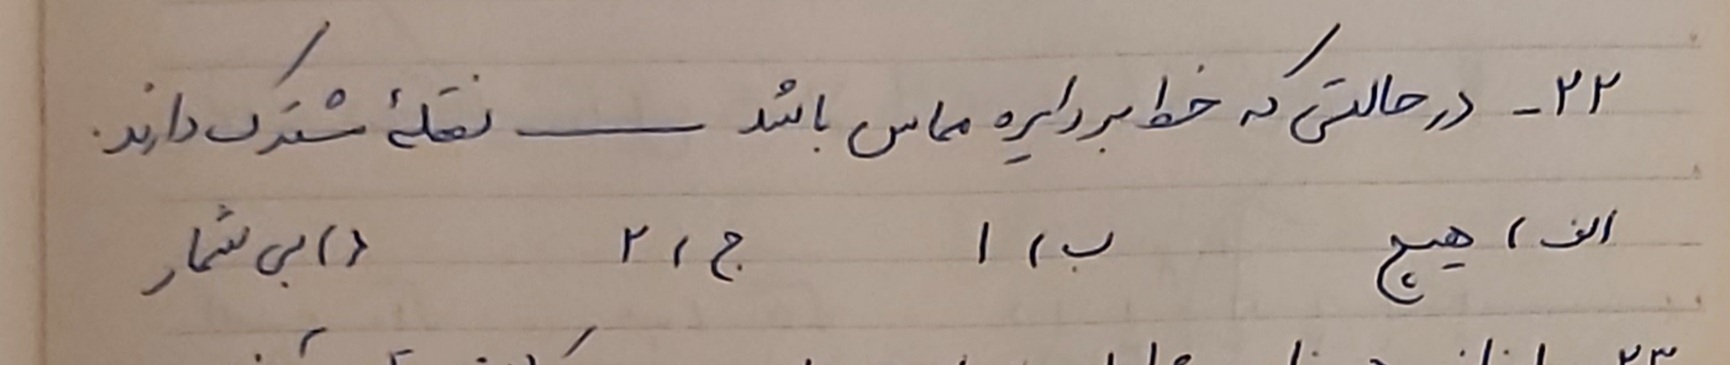 ۲۲- در حالتی که خط بر دایره مماس باشد ــــــ نقطهٔ مشترک دارند.
الف) هیچ ب) ۱ ج) ۲ د) بی شمار
۲۳